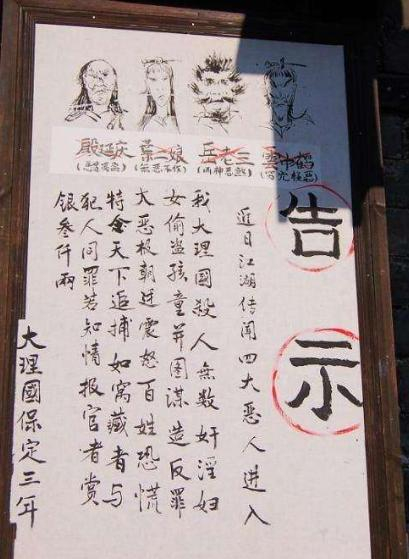 段延庆 葉二娘 岳老三 雲中鶴
(惡貫滿盈) (無惡不作) (凶神惡煞) (窮凶極惡)
告示
近日江湖传闻四大恶人进入
我大理國殺人無数奸淫妇
女偷盗孩童并图谋造反罪
大恶极朝廷震怒百姓恐慌
特令天下追捕如窝藏者与
犯人同罪若知情报官者赏
银叁仟兩
大理國保定三年